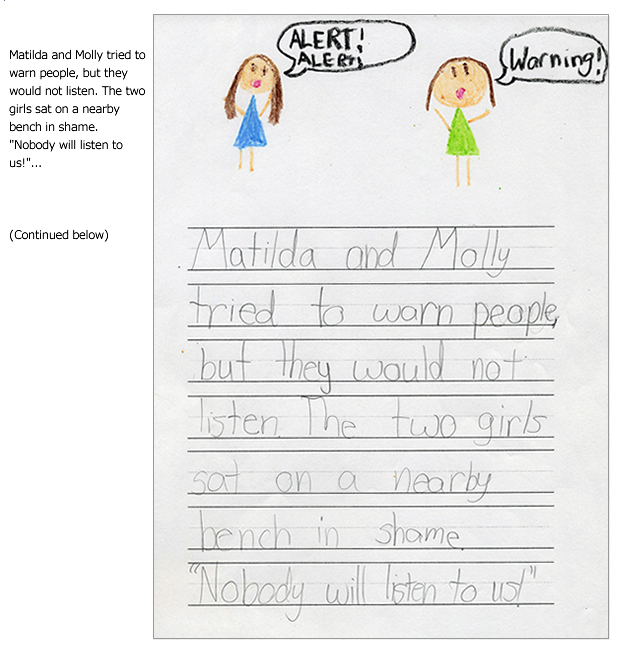 Matilda and Molly tried to
warn people, but they
would not listen. The two
girls sat on a nearby
bench in shame.
"Nobody will listen to
us!"...
(Continued below)
ALERT!
ALERT!
Warning!
Matilda and Molly
tried to warn people,
but they would not
listen. The two girls
sat on a nearby
bench in shame.
"Nobody will listen to us!"